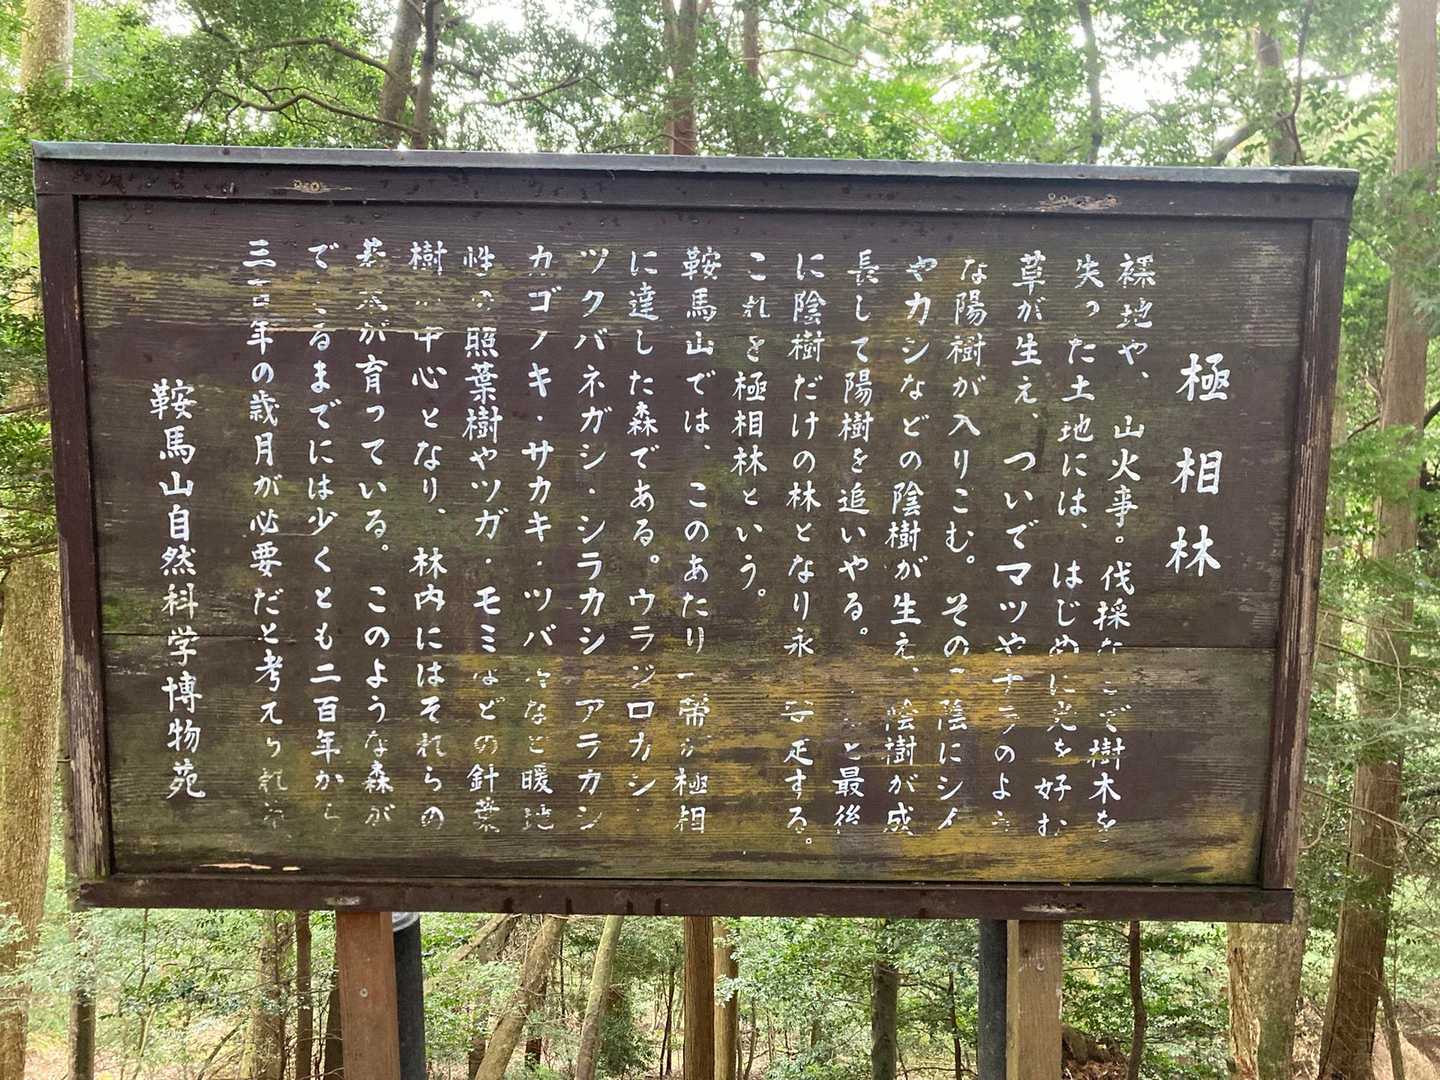 極相林
裸地や、山火事。伐採などで樹木を
失った土地には、はじめに光を好む
草が生え、ついでマツやナラのよう
な陽樹が入りこむ。その 陰にシイ
やカシなどの陰樹が生え、陰樹が成
長して陽樹を追いやる。 と最後
に陰樹だけの林となり永 安定する。
これを極相林という。
鞍馬山では、このあたり一帯が極相
に達した森である。ウラジロガシ
ツクバネガシ・シラカシ アラカシ
カゴノキ・サカキ・ツバキなど暖地
性の照葉樹やツガ・モミなどの針葉
樹が中心となり、林内にはそれらの
が育っている。このような森が
できるまでには少くとも二百年から
三百年の歳月が必要だと考えられ
鞍馬山自然科学博物苑